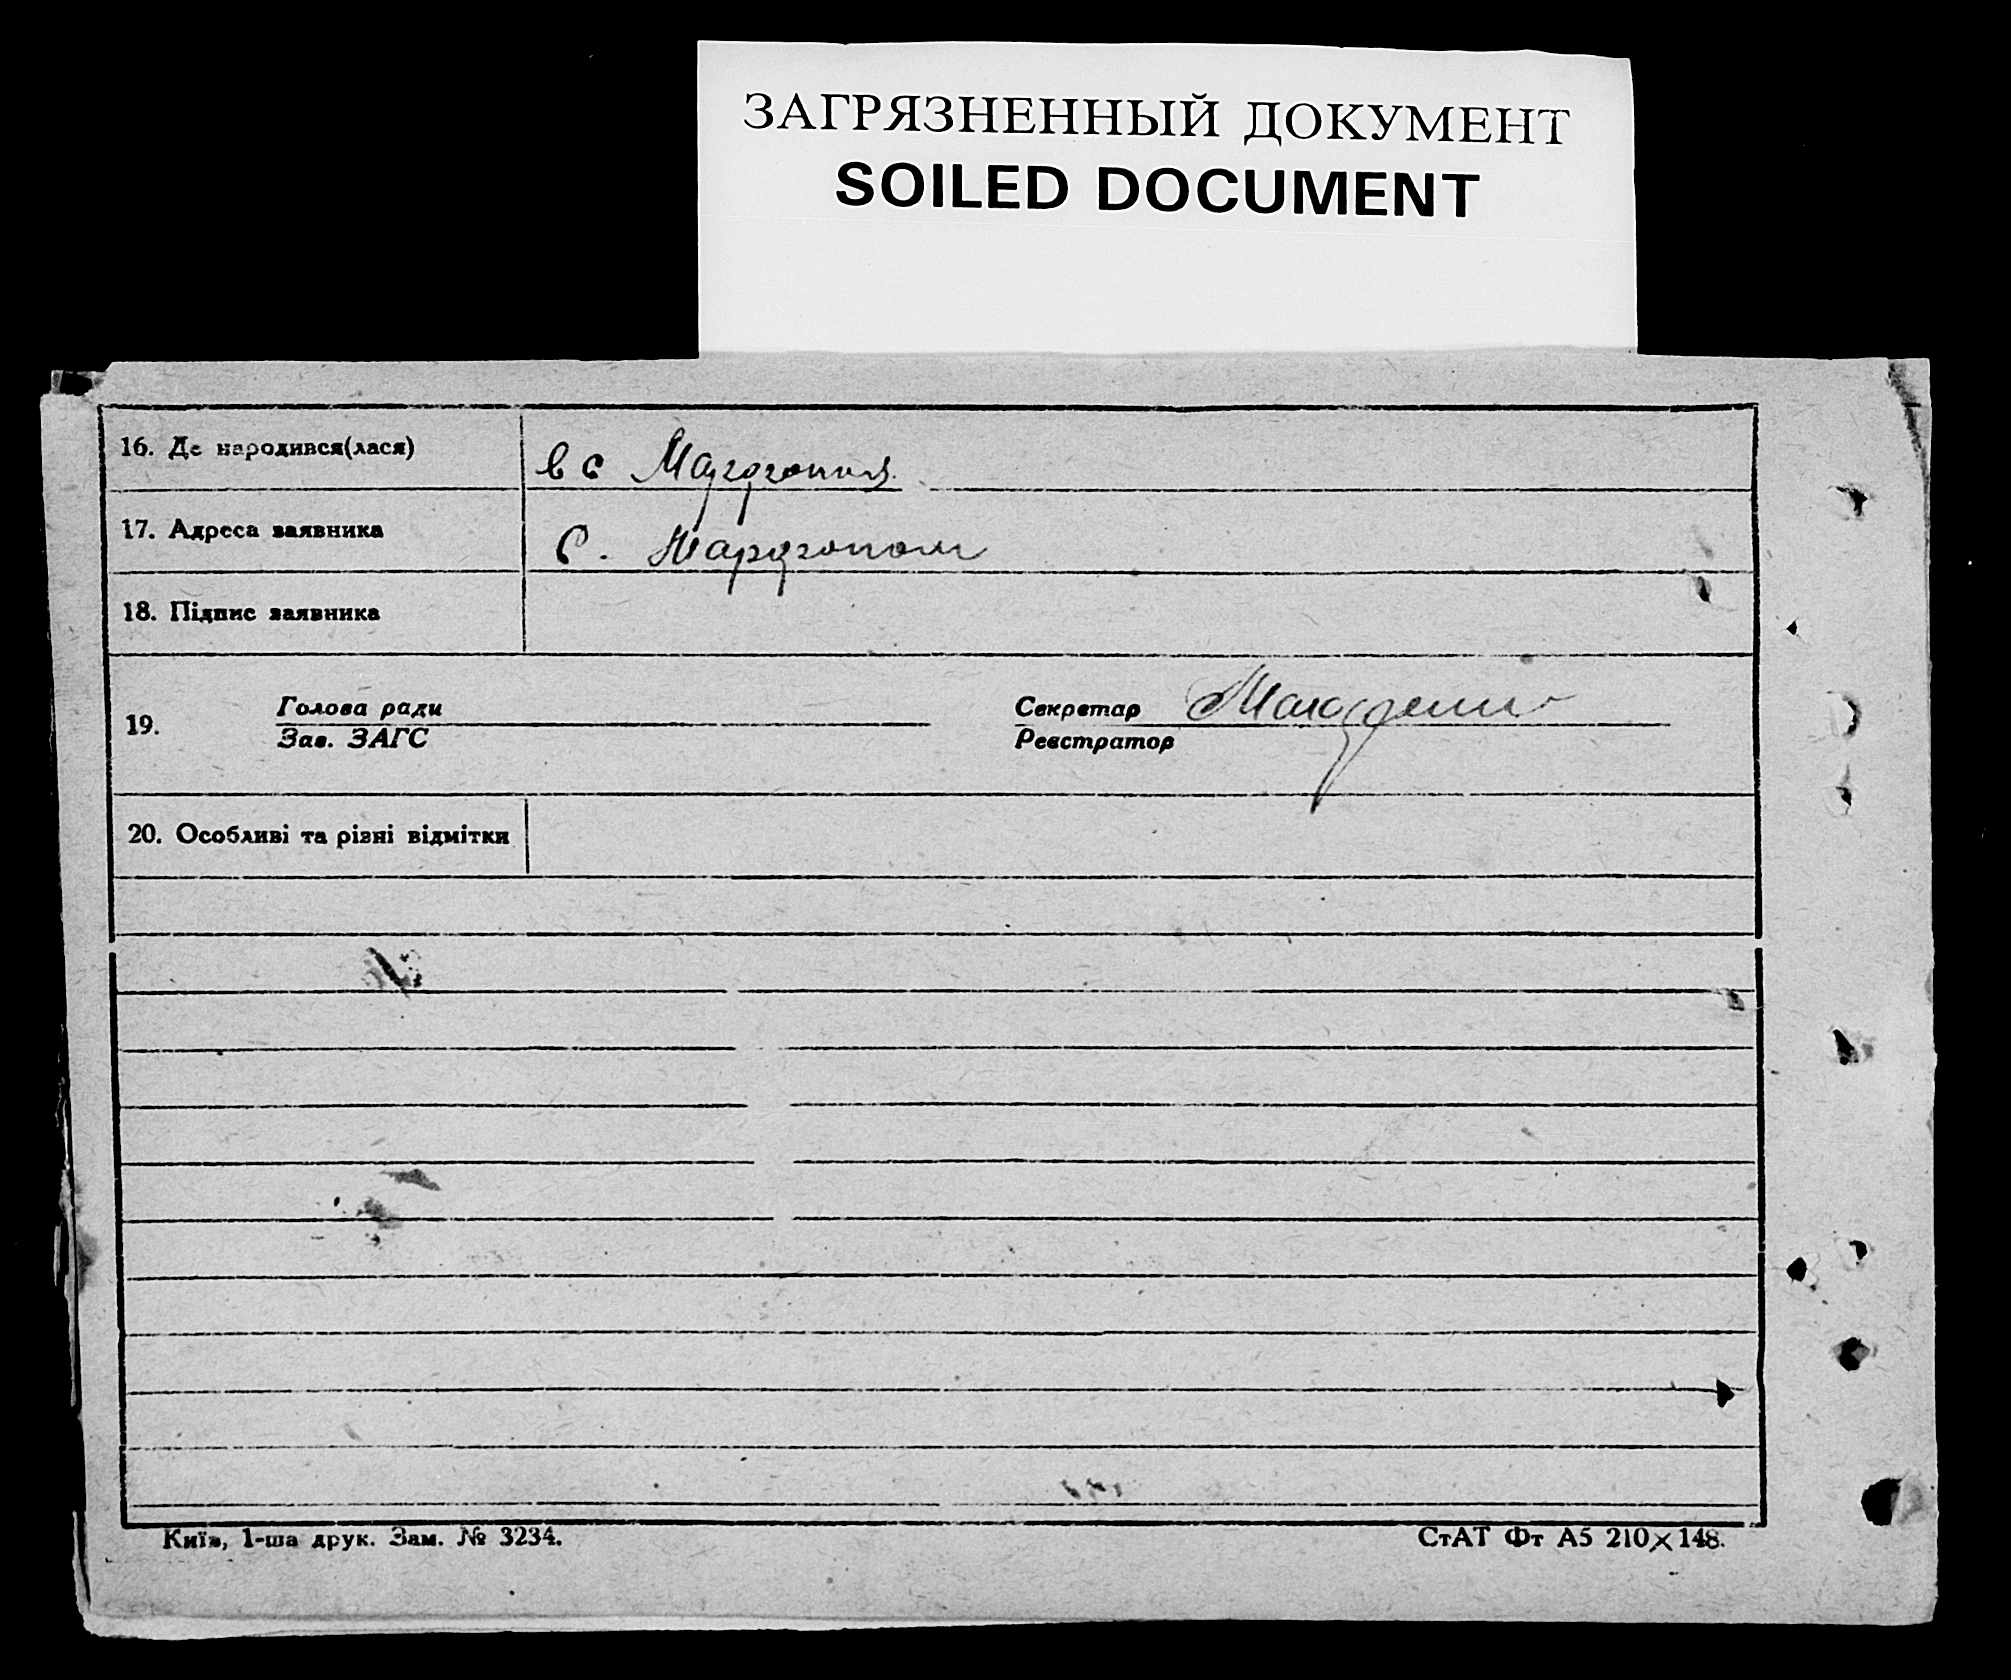 ЗАГРЯЗНЕННЫЙ ДОКУМЕНТ
SOILED DOCUMENT
16. Де народився(лася)
в с
17. Адреса заявника
с.
18. Підпис заявника
19.
Голова ради
Зав. ЗАГС
Секретар
Реєстратор
20. Особливі та різні відмітки
Київ, 1-ша друк. Зам. № 3234.
СтАТ Фт А5 210×148.